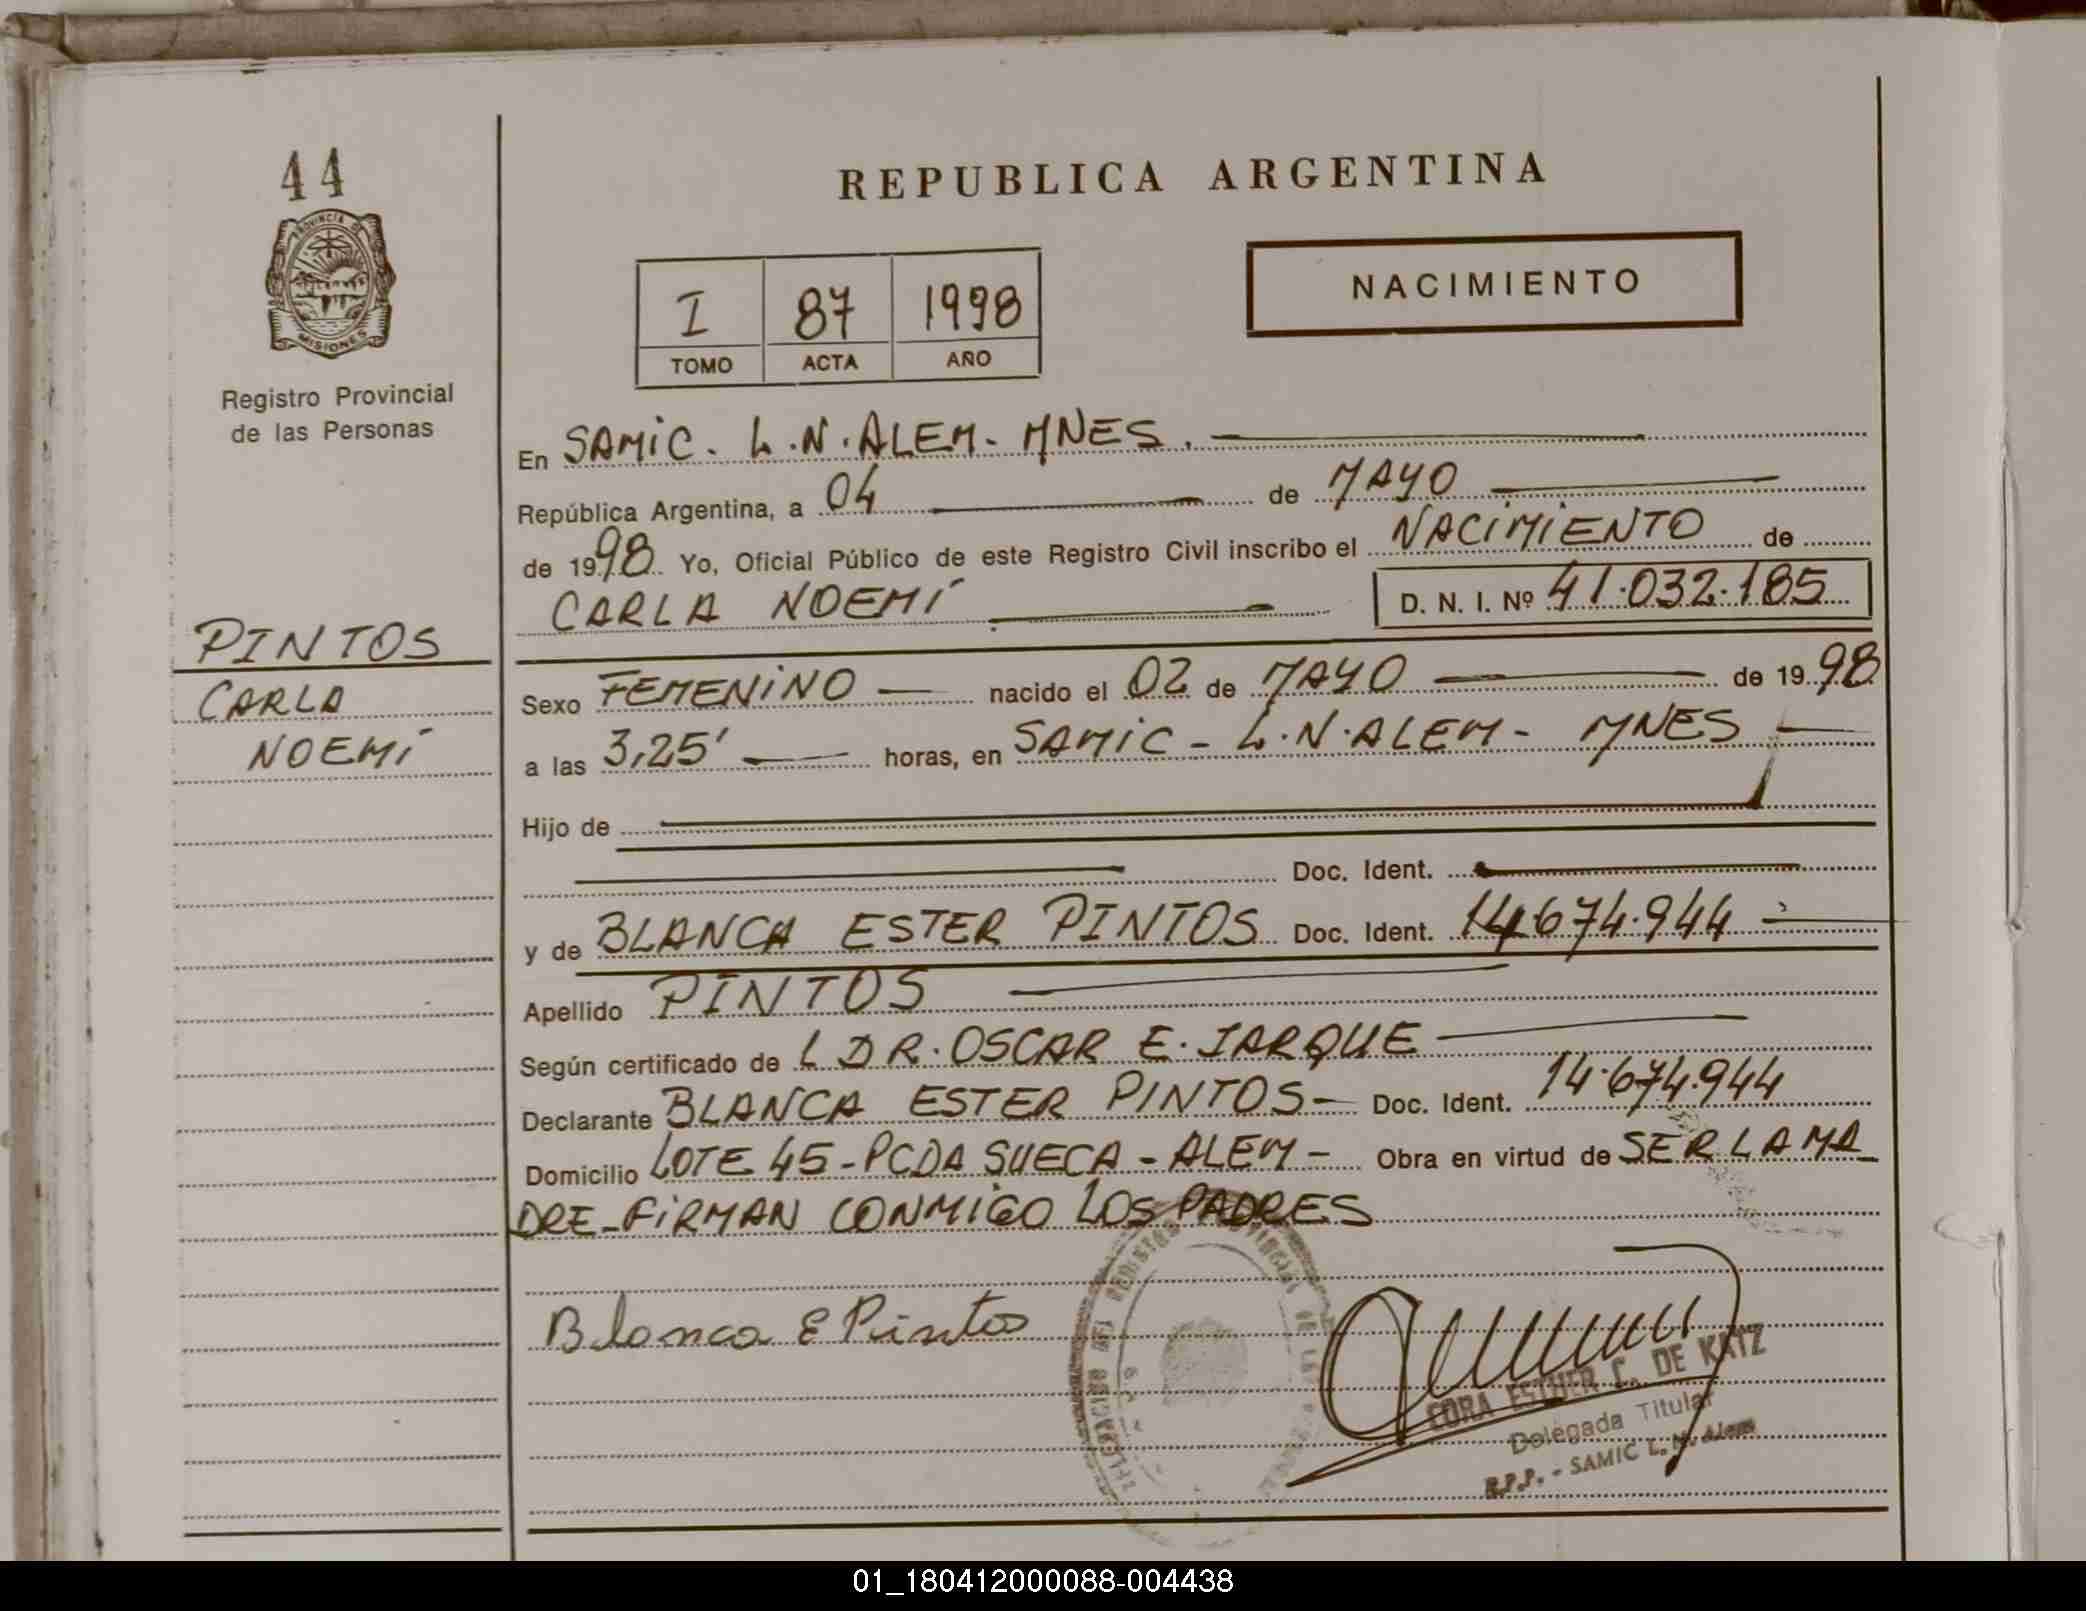 44
PROVINCIA DE
MISIONES
Registro Provincial
de las Personas
PINTOS
CARLA
NOEMÍ
REPUBLICA ARGENTINA
I 87 1998
TOMO ACTA AÑO
NACIMIENTO
En SAMIC. L.N.ALEM- MNES.
República Argentina, a 04 de MAYO
de 1998 Yo, Oficial Público de este Registro Civil inscribo el NACIMIENTO de
CARLA NOEMÍ D. N. I. Nº 41.032.185
Sexo FEMENINO nacido el 02 de MAYO de 1998
a las 3,25' horas, en SAMIC - L.N.ALEM- MNES
Hijo de
Doc. Ident.
y de BLANCA ESTER PINTOS Doc. Ident. 14.674.944
Apellido PINTOS
Según certificado de L DR. OSCAR E. JARQUE
Declarante BLANCA ESTER PINTOS- Doc. Ident. 14.674.944
Domicilio LOTE 45-PCDA SUECA-ALEM- Obra en virtud de SER LA MA
DRE-FIRMAN CONMIGO LOS PADRES
Blanca E Pintos
CORA ESTHER C. DE KATZ
Delegada Titular
R.P.P. - SAMIC L. N. Alem
01_180412000088-004438